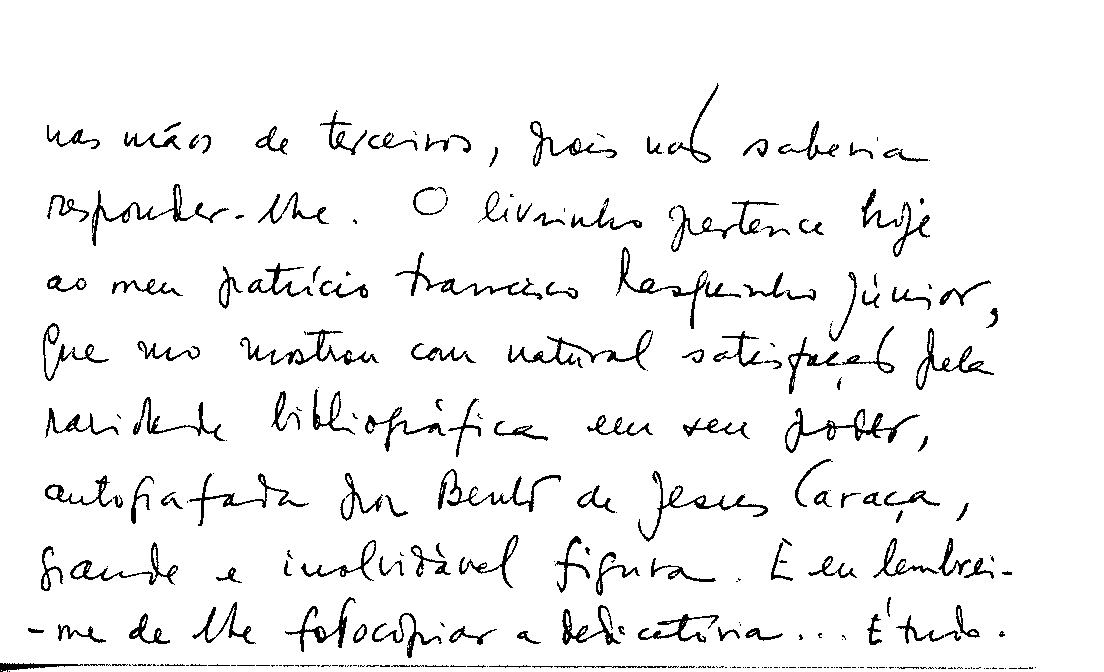 nas mãos de terceiros, pois não saberia
responder-lhe. O livrinho pertence hoje
ao meu patrício Francisco Rasquinho Júnior,
que mo mostrou com natural satisfação pela
raridade bibliográfica em seu poder,
autografada por Bento de Jesus Caraça,
grande e inolvidável figura. E eu lembrei-
-me de lhe fotocopiar a dedicatória... É tudo.